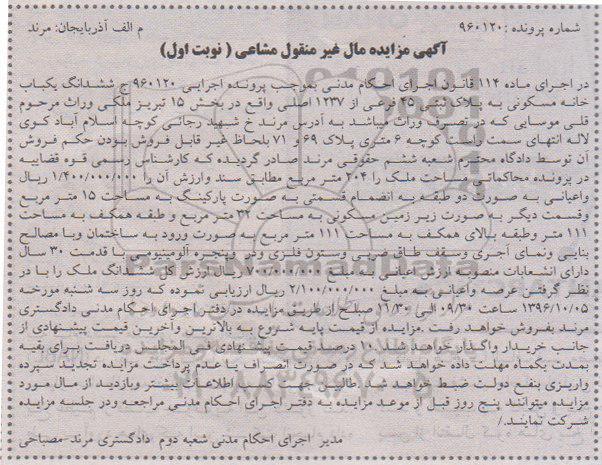 شماره پرونده : ۹۶۰۱۲۰ م الف آذربایجان: مرند
آگهی مزایده مال غیر منقول مشاعی ( نوبت اول)
در اجرای ماده ۱۱۴ قانون اجرای احکام مدنی بموجب پرونده اجرایی ۹۶۰۱۲۰ ج ششدانگ یکباب
خانه مسکونی به پلاک ثبتی ۲۵ فرعی از ۱۲۳۷ اصلی واقع در بخش ۱۵ تبریز ملکی وراث مرحوم
قلی موسایی که در تصرف وراث میباشد به آدرس مرند خ شهید رجائی کوچه اسلام آباد کوی
لاله انتهای سمت راست کوچه ۶ متری پلاک ۶۹ و ۷۱ بلحاظ غیر قابل فروش بودن حکم فروش
آن توسط دادگاه محترم شعبه ششم حقوقی مرند صادر گردیده که کارشناس رسمی قوه قضاییه
در پرونده محاکماتی مساحت ملک را ۲۰۴ متر مربع مطابق سند وارزش آن را ۱/۴۰۰/۰۰۰/۰۰۰ ریال
واعیانی به صورت دو طبقه به انضمام قسمتی به صورت پارکینگ به مساحت ۱۵ متر مربع
وقسمت دیگر به صورت زیر زمین مسکونی به مساحت ۳۲ متر مربع و طبقه همکف به مساحت
۱۱۱ متر وطبقه بالای همکف به مساحت ۱۱۱ متر مربع به صورت ورود به ساختمان وبا مصالح
بنایی ونمای آجری وسقف طاق ضربی وستون فلزی ودر وپنجره آلومینیومی با قدمت ۳۰ سال
دارای انشعابات منصوبه ارزش اعیانی به مبلغ ۷۰۰/۰۰۰/۰۰۰ ریال وارزش کل ششدانگ ملک را با در
نظر گرفتن عرصه واعیانی به مبلغ ۲/۱۰۰/۰۰۰/۰۰۰ ریال ارزیابی نموده که روز سه شنبه مورخه
۱۳۹۶/۱۰/۰۵ ساعت ۰۹/۳۰ الی ۱۱/۳۰ صبح از طریق مزایده در دفتر اجرای احکام مدنی دادگستری
مرند بفروش خواهد رفت .مزایده از قیمت پایه شروع به بالاترین واخرین قیمت پیشنهادی از
جانب خریدار واگذار خواهد شد. ۱۰ درصد قیمت پیشنهادی فی المجلس دریافت وبرای بقیه
بمدت یکماه مهلت داده خواهد شد که در صورت انصراف یا عدم پرداخت مزایده تجدید سپرده
واریزی بنفع دولت ضبط خواهد شد .طالبین جهت کسب اطلاعات بیشتر وبازدید از مال مورد
مزایده میتوانند پنج روز قبل از موعد مزایده به دفتر اجرای احکام مدنی مراجعه ودر جلسه مزایده
شرکت نمایند./
مدیر اجرای احکام مدنی شعبه دوم دادگستری مرند-مصباحی